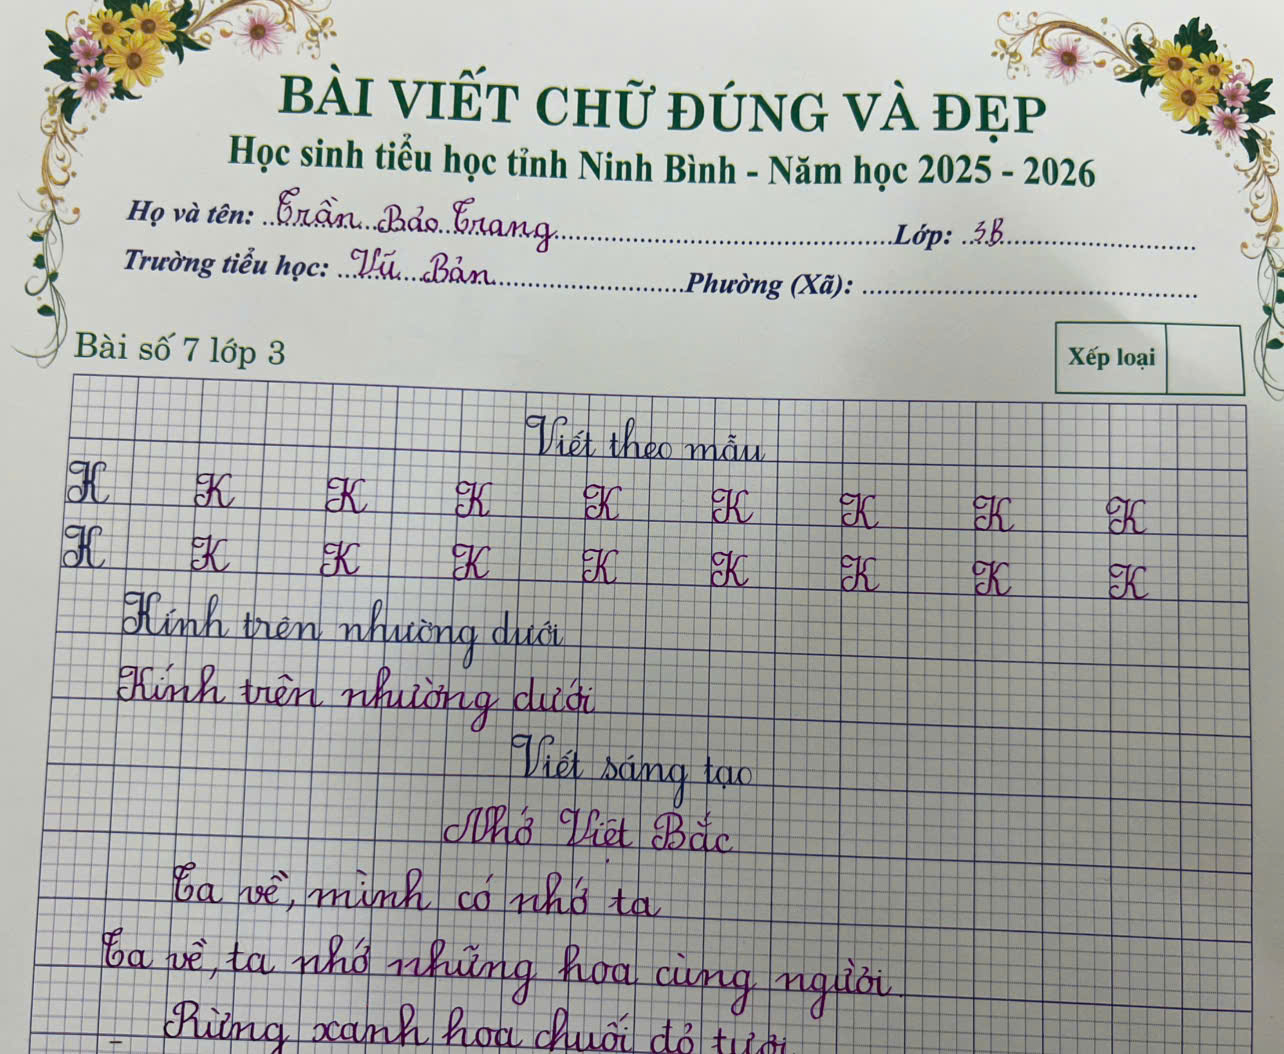 BÀI VIẾT CHỮ ĐÚNG VÀ ĐẸP
Học sinh tiểu học tỉnh Ninh Bình - Năm học 2025 - 2026
Họ và tên: Trần Bảo Trang Lớp: 3B
Trường tiểu học: Vũ Bản Phường (Xã):
Bài số 7 lớp 3
Xếp loại
Viết theo mẫu
K K K K K K K K K
K K K K K K K K K
Kính trên nhường dưới
Kính trên nhường dưới
Viết sáng tạo
Nhớ Việt Bắc
Ta về, mình có nhớ ta
Ta về, ta nhớ những hoa cùng người.
Rừng xanh hoa chuối đỏ tươi